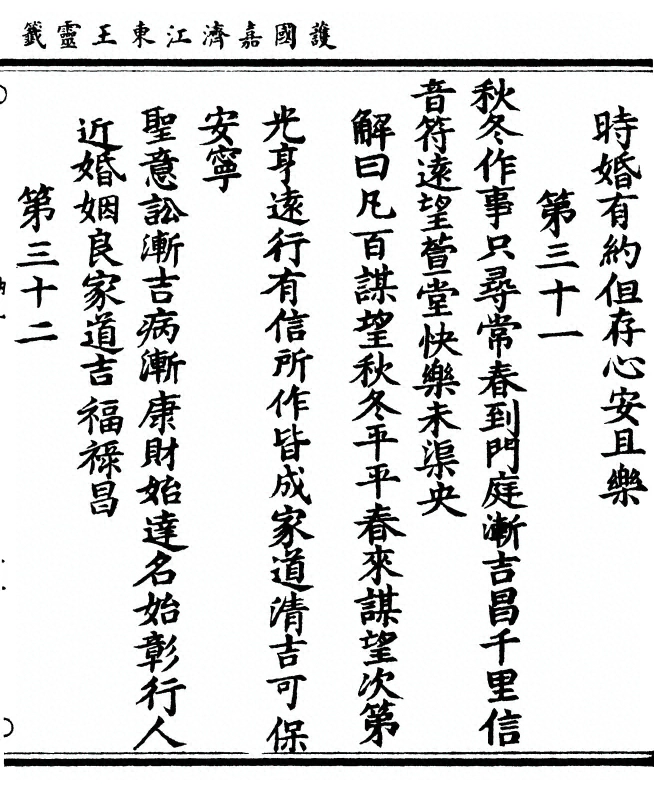 護國嘉濟江東王靈籤
時婚有約但存心安且樂
第三十一
秋冬作事只尋常春到門庭漸吉昌千里信
音符遠望萱堂快樂未渠央
解曰凡百謀望秋冬平平春來謀望次第
光亨遠行有信所作皆成家道清吉可保
安寧
聖意訟漸吉病漸康財始達名始彰行人
近婚姻良家道吉福祿昌
第三十二